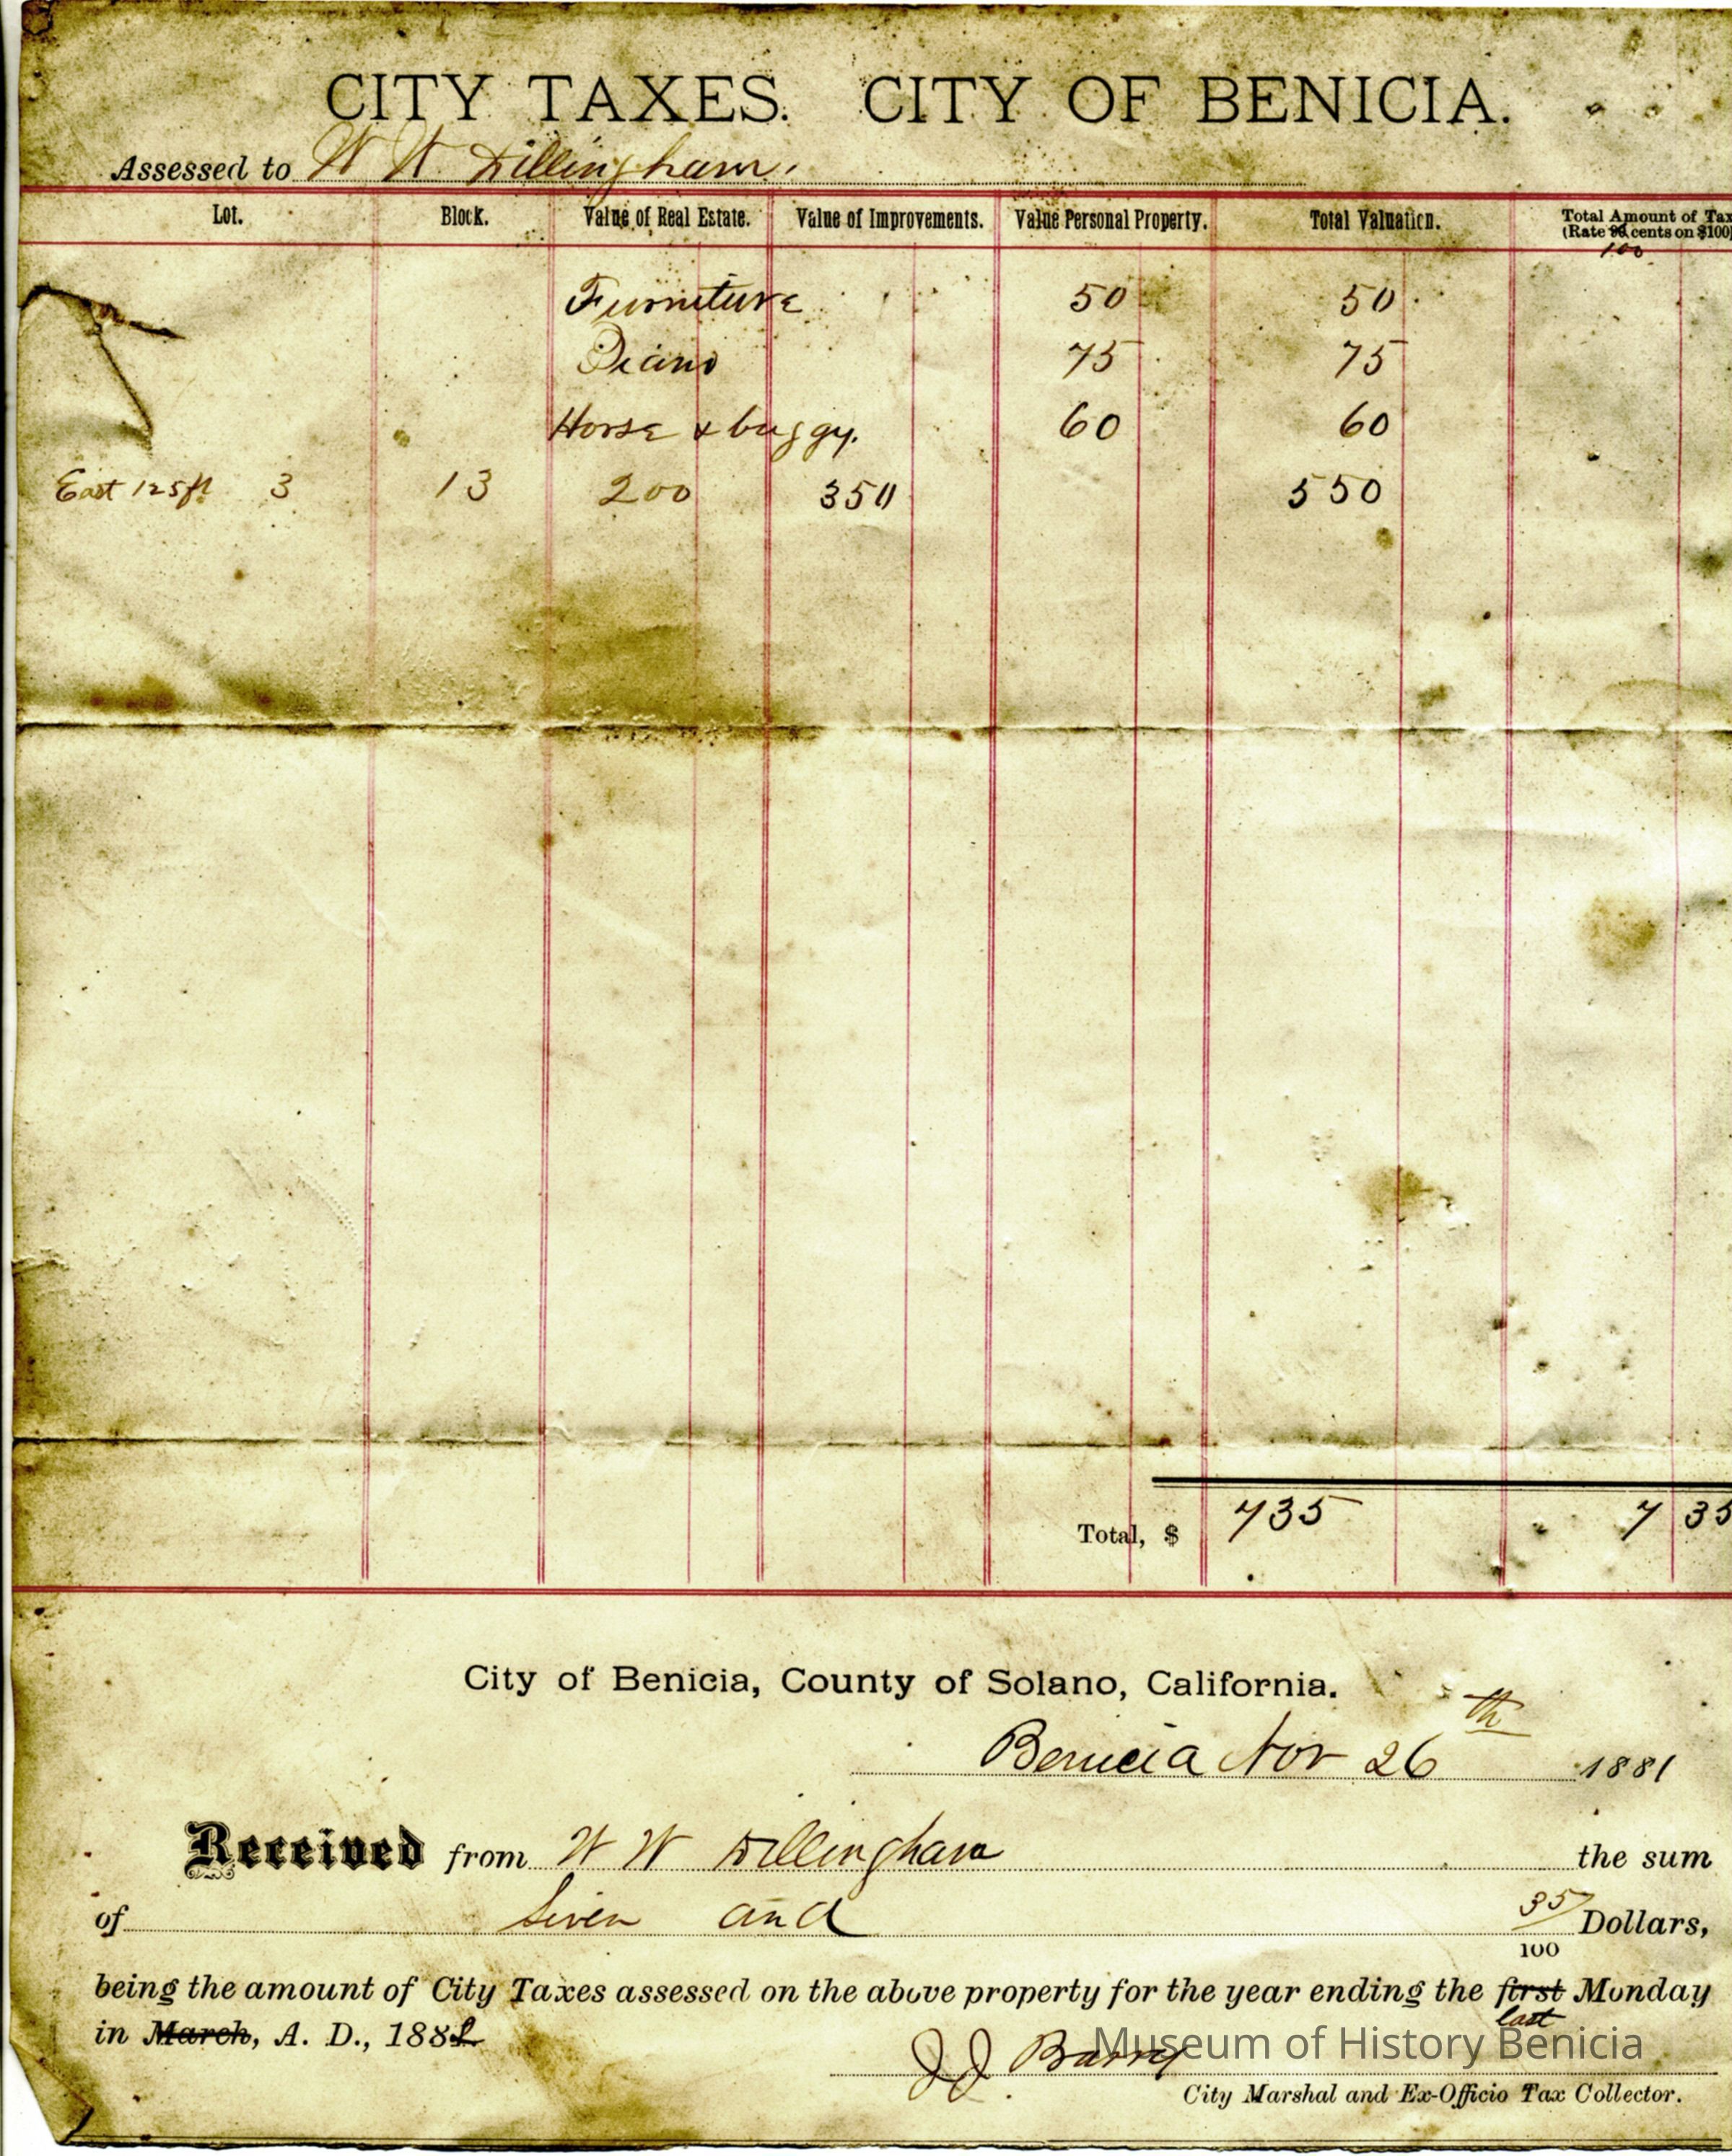 CITY TAXES. CITY OF BENICIA.
Assessed to W W Dillingham.
Lot. Block. Value of Real Estate. Value of Improvements. Value Personal Property. Total Valuation. Total Amount of Tax
(Rate cents on $100)
100
Furniture 50 50
Piano 75 75
Horse & buggy. 60 60
East 125 ft 3 13 200 350 550
Total, $ 735 7 35
City of Benicia, County of Solano, California.
Benicia Nov 26th 1881
Received from W W Dillingham the sum
of Seven and 35/100 Dollars,
being the amount of City Taxes assessed on the above property for the year ending the first Monday
last
in March, A. D., 188
J J Barry
Museum of History Benicia
City Marshal and Ex-Officio Tax Collector.